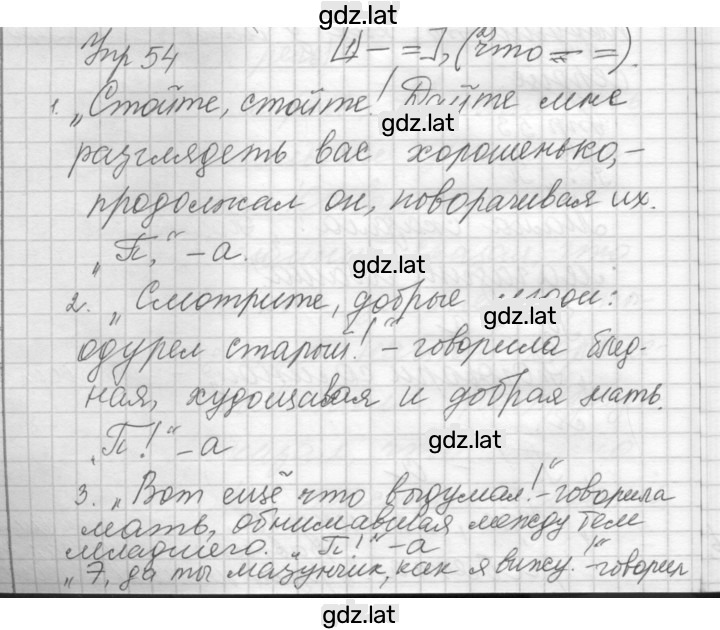 gdz.lat
Упр 54 [1) – =], (2) что – =).
1. „Стойте, стойте! Дайте мне
gdz.lat
разглядеть вас хорошенько, –
продолжал он, поворачивая их.
„П,“ – а.
gdz.lat
2. „Смотрите, добрые люди:
gdz.lat
одурел старый!“ – говорила блед-
ная, худощавая и добрая мать.
„П!“ – а
gdz.lat
3. „Вот ещё что выдумал!“ – говорила
мать, обнимавшая между тем
младшего. „П!“ – а
„Э, да ты мазунчик, как я вижу!“ – говорил
gdz.lat